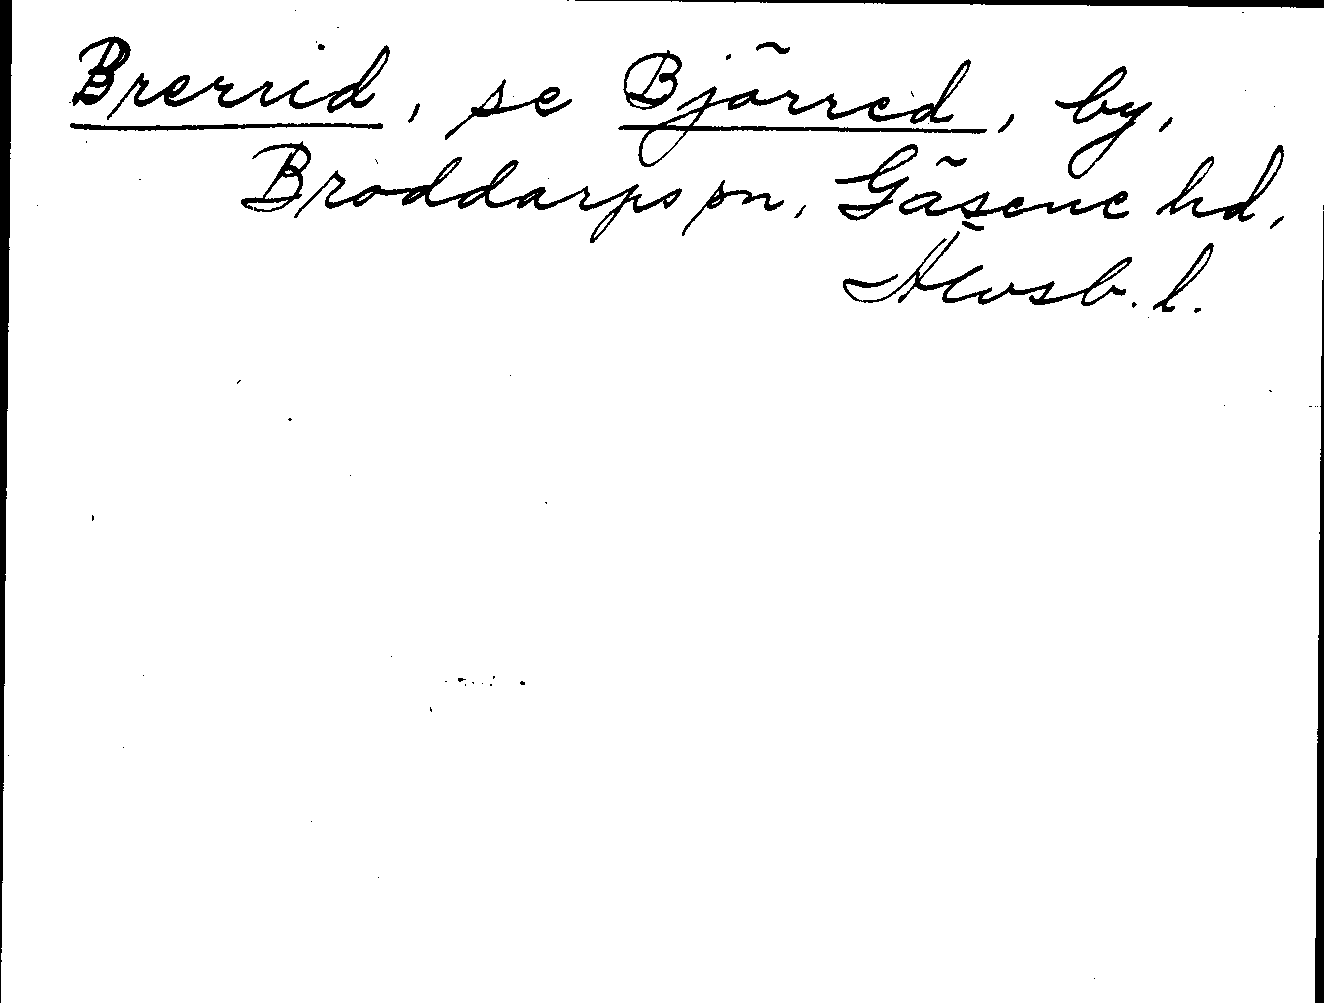 Brerrid, se Bjõrred, by,
Broddarps sn, Gãsene hd,
Älvsb. l.